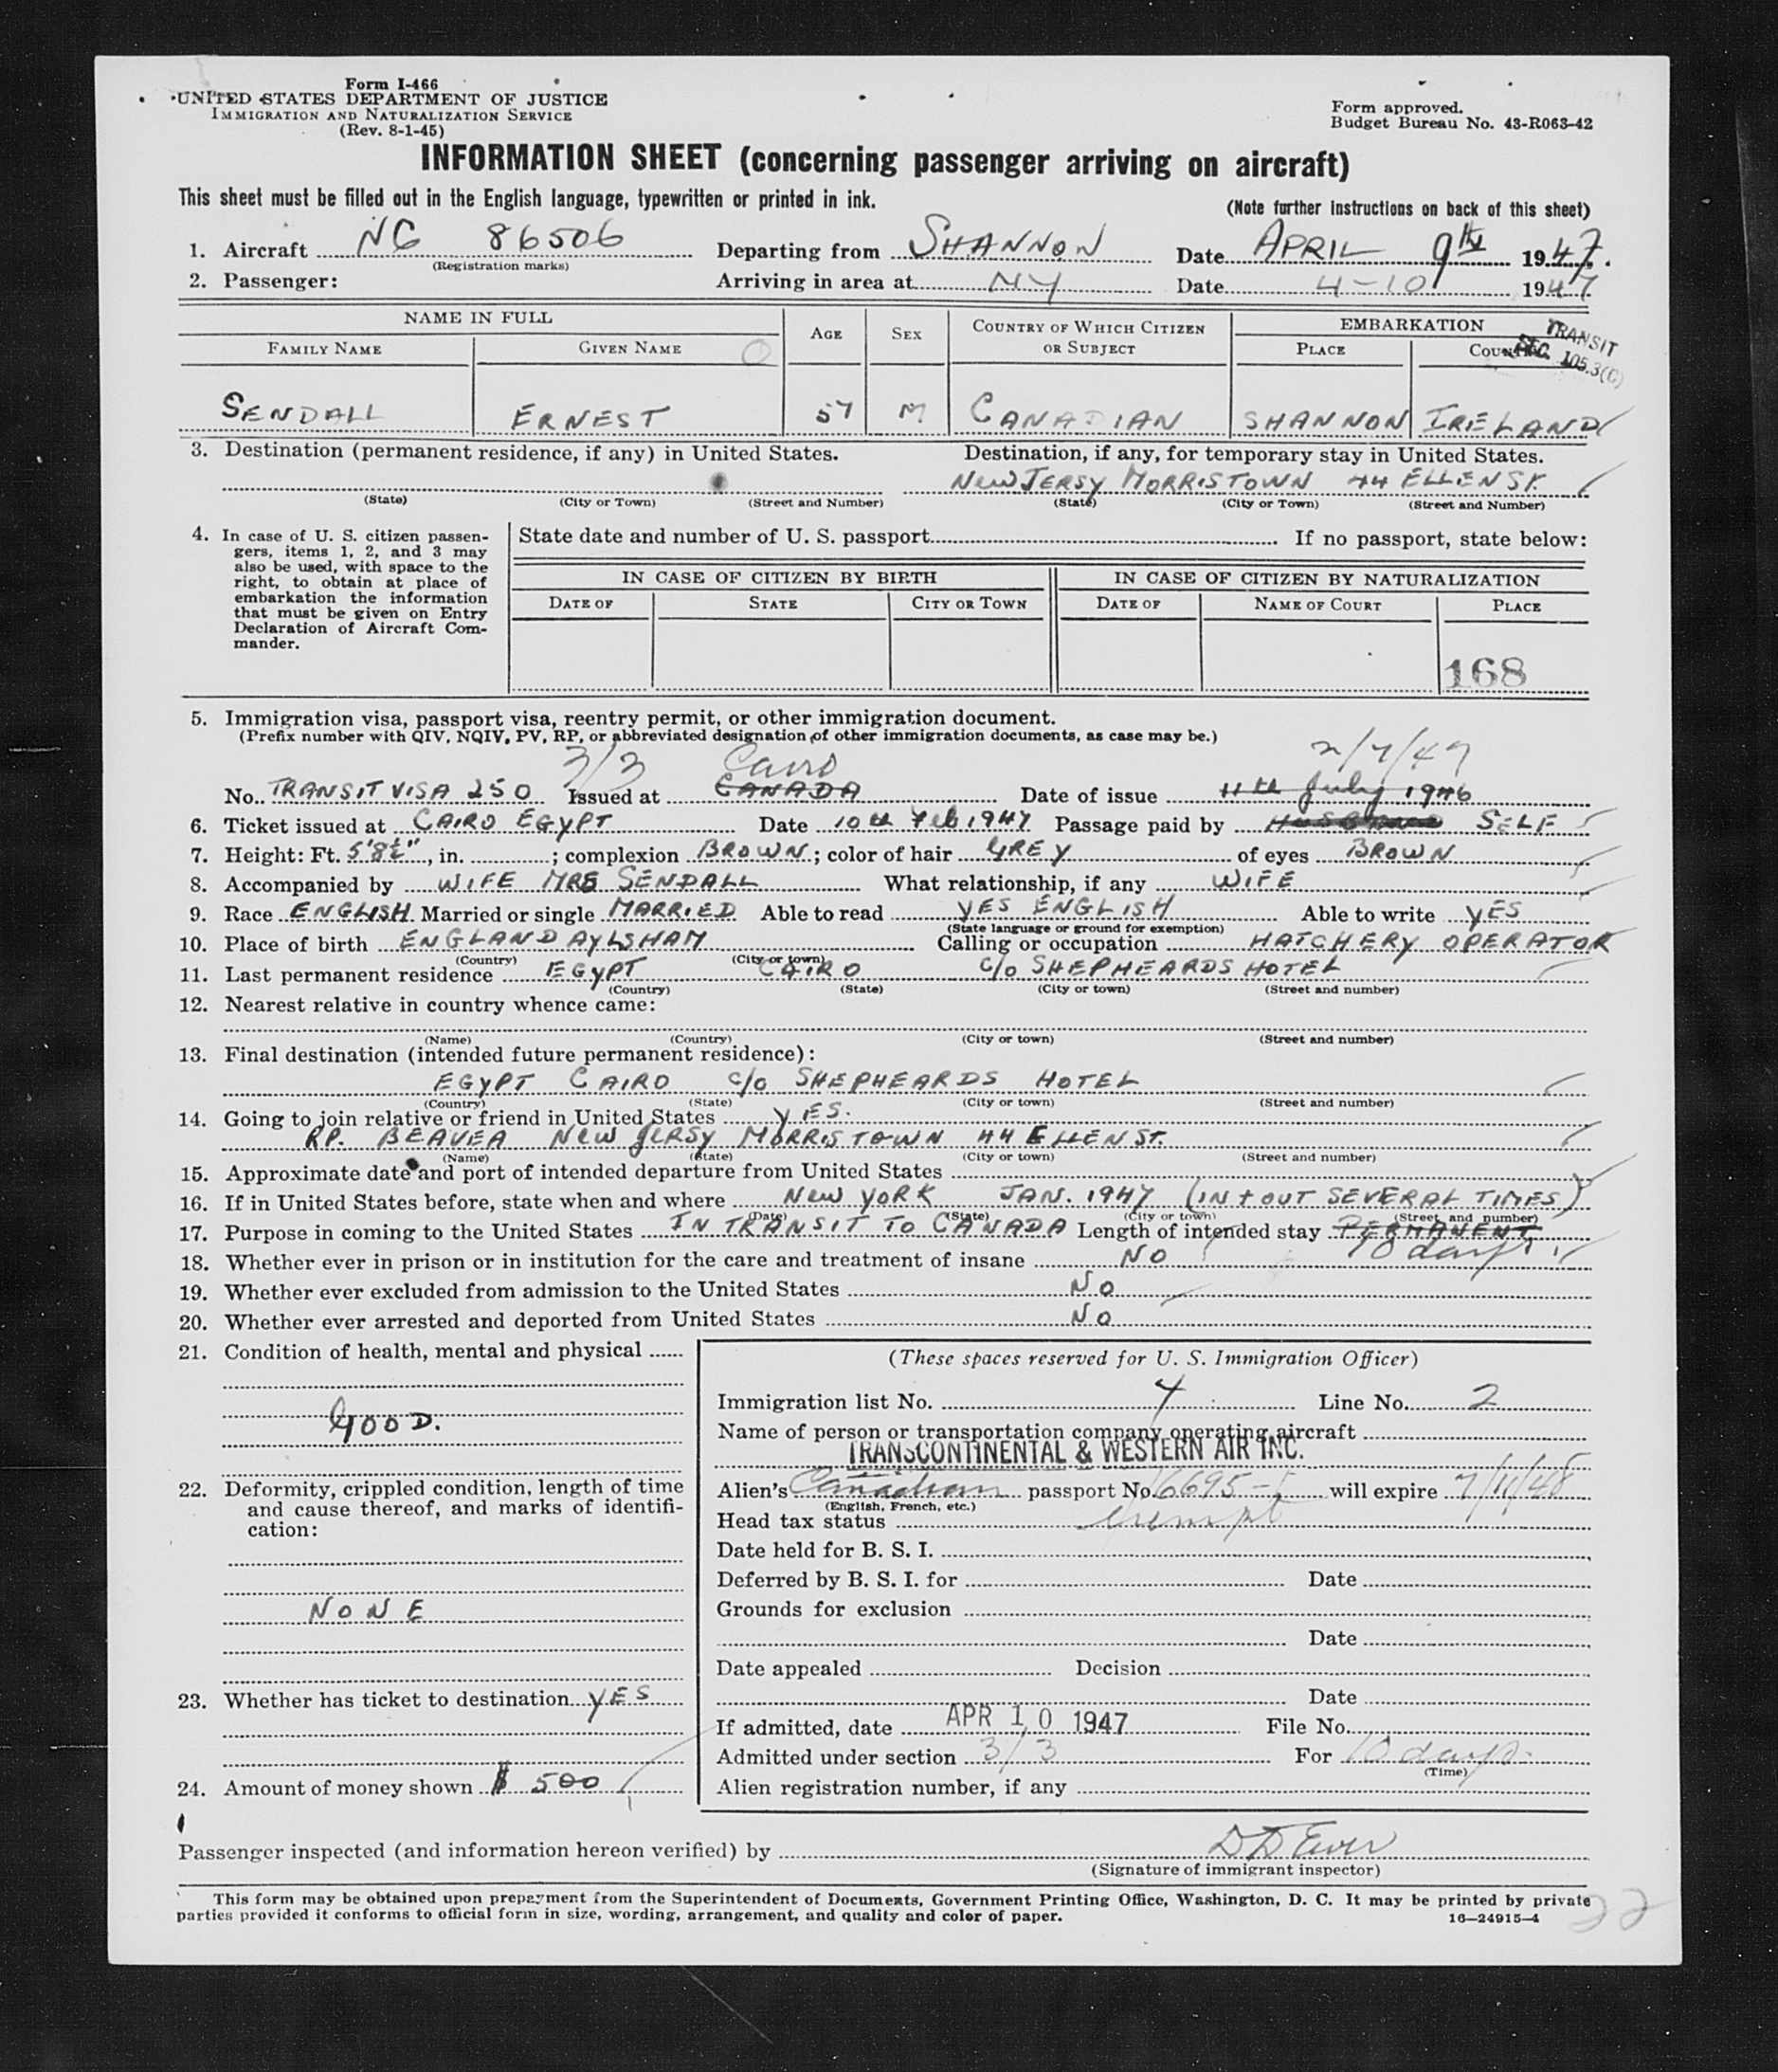 Form I-466
UNITED STATES DEPARTMENT OF JUSTICE
IMMIGRATION AND NATURALIZATION SERVICE
(Rev. 8-1-45)
Form approved.
Budget Bureau No. 43-R063-42
INFORMATION SHEET (concerning passenger arriving on aircraft)
This sheet must be filled out in the English language, typewritten or printed in ink.
(Note further instructions on back of this sheet)
1. Aircraft NC 86506 Departing from SHANNON Date APRIL 9th 1947.
(Registration marks)
2. Passenger: Arriving in area at NY Date 4-10 1947
NAME IN FULL AGE SEX COUNTRY OF WHICH CITIZEN OR SUBJECT EMBARKATION
FAMILY NAME GIVEN NAME PLACE COUNTRY
TRANSIT
SEC. 105.3(C)
SENDALL ERNEST 57 M CANADIAN SHANNON IRELAND
3. Destination (permanent residence, if any) in United States. Destination, if any, for temporary stay in United States.
NEW JERSY MORRISTOWN 44 ELLEN ST.
(State) (City or Town) (Street and Number) (State) (City or Town) (Street and Number)
4. In case of U. S. citizen passen-
gers, items 1, 2, and 3 may
also be used, with space to the
right, to obtain at place of
embarkation the information
that must be given on Entry
Declaration of Aircraft Com-
mander.
State date and number of U. S. passport If no passport, state below:
IN CASE OF CITIZEN BY BIRTH IN CASE OF CITIZEN BY NATURALIZATION
DATE OF STATE CITY OR TOWN DATE OF NAME OF COURT PLACE
168
5. Immigration visa, passport visa, reentry permit, or other immigration document.
(Prefix number with QIV, NQIV, PV, RP, or abbreviated designation of other immigration documents, as case may be.)
3/3 Cairo 2/7/47
No. TRANSIT VISA 250 Issued at CANADA Date of issue 11th July 1946
6. Ticket issued at CAIRO EGYPT Date 10th Feb 1947 Passage paid by SELF
7. Height: Ft. 5'8½", in. ; complexion BROWN; color of hair GREY of eyes BROWN
8. Accompanied by WIFE MRS SENDALL What relationship, if any WIFE
9. Race ENGLISH Married or single MARRIED Able to read YES ENGLISH Able to write YES
(State language or ground for exemption)
10. Place of birth ENGLAND AYLSHAM Calling or occupation HATCHERY OPERATOR
(Country) (City or town)
11. Last permanent residence EGYPT CAIRO c/o SHEPHEARDS HOTEL
(Country) (State) (City or town) (Street and number)
12. Nearest relative in country whence came:
(Name) (Country) (City or town) (Street and number)
13. Final destination (intended future permanent residence):
EGYPT CAIRO c/o SHEPHEARDS HOTEL
(Country) (State) (City or town) (Street and number)
14. Going to join relative or friend in United States YES.
RP. BEAVEA NEW JERSY MORRISTOWN 44 ELLEN ST.
(Name) (State) (City or town) (Street and number)
15. Approximate date and port of intended departure from United States
16. If in United States before, state when and where NEW YORK JAN. 1947 (IN + OUT SEVERAL TIMES)
(Date) (State) (City or town) (Street and number)
17. Purpose in coming to the United States IN TRANSIT TO CANADA Length of intended stay PERMANENT
10 days
18. Whether ever in prison or in institution for the care and treatment of insane NO
19. Whether ever excluded from admission to the United States NO
20. Whether ever arrested and deported from United States NO
21. Condition of health, mental and physical
GOOD.
22. Deformity, crippled condition, length of time
and cause thereof, and marks of identifi-
cation:
NONE
23. Whether has ticket to destination YES
24. Amount of money shown $ 500
(These spaces reserved for U. S. Immigration Officer)
Immigration list No. 4 Line No. 2
Name of person or transportation company operating aircraft
TRANSCONTINENTAL & WESTERN AIR INC.
Alien's Canadian passport No. 16695- will expire 7/11/48
(English, French, etc.)
Head tax status exempt
Date held for B. S. I.
Deferred by B. S. I. for Date
Grounds for exclusion
Date
Date appealed Decision
Date
If admitted, date APR 10 1947 File No.
Admitted under section 3/3 For 10 days.
(Time)
Alien registration number, if any
Passenger inspected (and information hereon verified) by
(Signature of immigrant inspector)
This form may be obtained upon prepayment from the Superintendent of Documents, Government Printing Office, Washington, D. C. It may be printed by private
parties provided it conforms to official form in size, wording, arrangement, and quality and color of paper.
16—24915-4
22